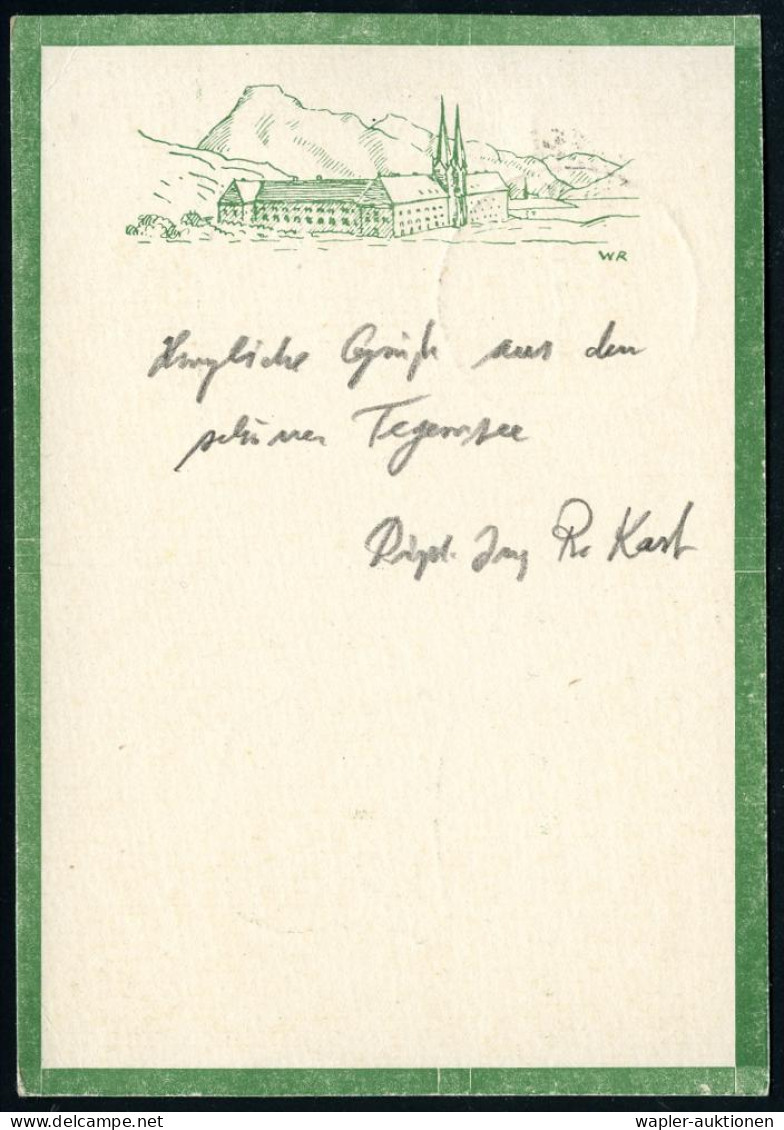 WR
Herzliche Grüße aus dem
schönen Tegernsee
Dipl. Ing Kast
wapler-auktionen